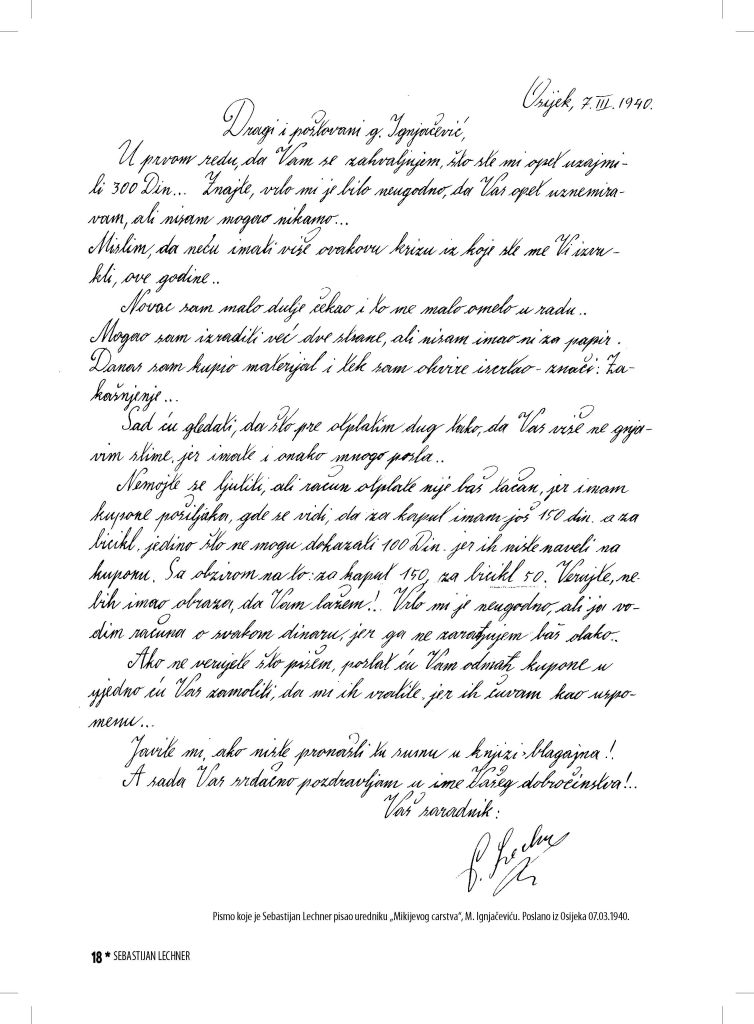 Osijek, 7. III. 1940.
Dragi i poštovani g. Ignjačević,
U prvom redu, da Vam se zahvaljujem, što ste mi opet uzajmi-
li 300 Din... Znajte, vrlo mi je bilo neugodno, da Vas opet uznemira-
vam, ali nisam mogao nikamo...
Mislim, da neću imati više ovakovu krizu iz koje ste me Vi izvu-
kli, ove godine..
Novac sam malo dulje čekao i to me malo omelo u radu..
Mogao sam izraditi već dve strane, ali nisam imao ni za papir.
Danas sam kupio materijal i tek sam okvire iscrtao - znači: Za-
kašnjenje...
Sad ću gledati, da što pre otplatim dug tako, da Vas više ne gnja-
vim stime, jer imate i onako mnogo posla..
Nemojte se ljutiti, ali račun otplate nije baš tačan, jer imam
kupone pošiljaka, gde se vidi, da za kaput imam još 150 din. a za
bicikl, jedino što ne mogu dokazati 100 Din. jer ih niste naveli na
kuponu. Sa obzirom na to: za kaput 150, za bicikl 50. Verujte, ne-
bih imao obraza, da Vam lažem!. Vrlo mi je neugodno, ali ja vo-
dim računa o svakom dinaru, jer ga ne zarađujem baš olako..
Ako ne verujete što pišem, poslat ću Vam odmah kupone u
ujedno ću Vas zamoliti, da mi ih vratite, jer ih čuvam kao uspo-
menu...
Javite mi, ako niste pronašli tu sumu u knjizi-blagajna!.
A sada Vas srdačno pozdravljam u ime Vašeg dobročinstva!..
Vaš saradnik:
S. Lechner
Pismo koje je Sebastijan Lechner pisao uredniku „Mikijevog carstva“, M. Ignjačeviću. Poslano iz Osijeka 07.03.1940.
18 * SEBASTIJAN LECHNER